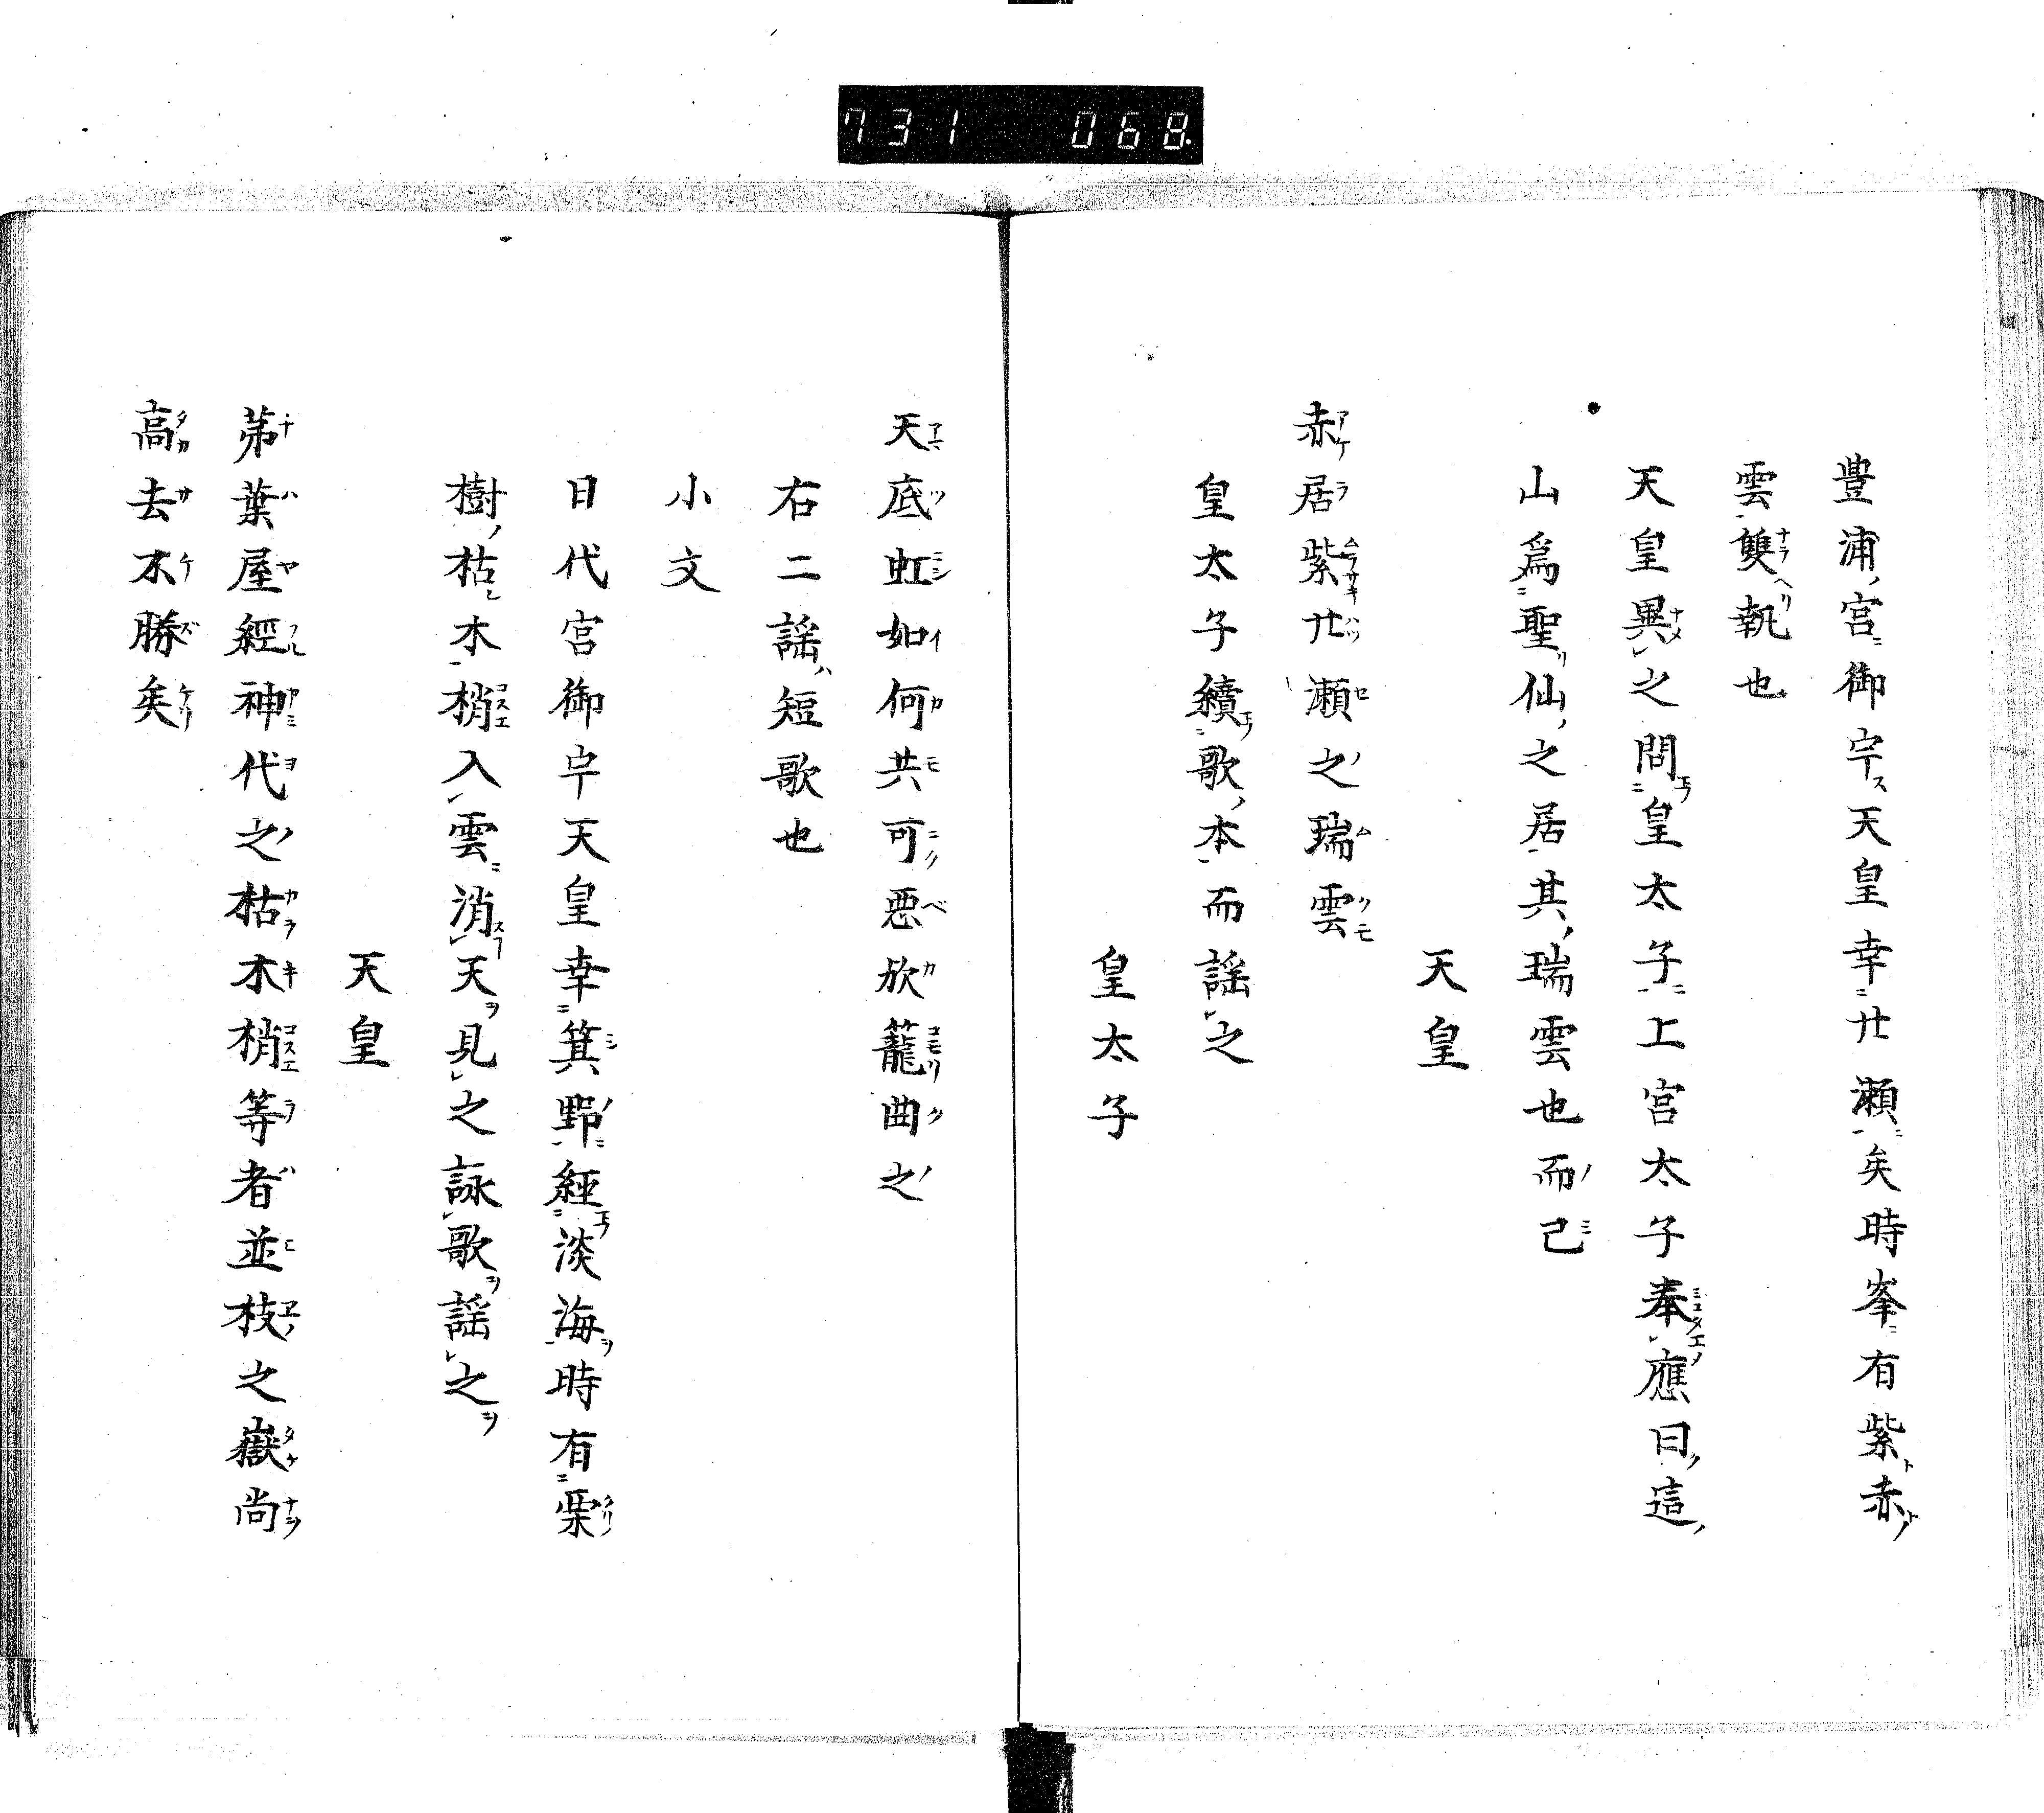 731 068
豊浦宮御宇天皇幸廿瀬矣時峯有紫赤
雲雙執也
天皇異之問皇太子上宮太子奉應曰這
山爲聖仙之居其瑞雲也而己
天皇
赤居紫廿瀬之瑞雲
皇太子續歌本而謡之
皇太子
天底虹如何共可悪欣籠曲之
右二謡短歌也
小文
日代宮御宇天皇幸箕野經淡海時有栗
樹枯木梢入雲消天見之詠歌謡之
天皇
苐葉屋經神代之枯木梢等者並枝之嶽尚
高去不勝矣